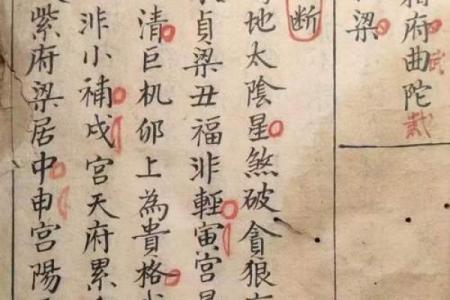 府曲陀
梁
断
地太陰星煞破貪狼
貞梁丑福非輕寅宮
清巨机卯上為貴格
非小補戌宮天府累
紫府梁居中申宮陽